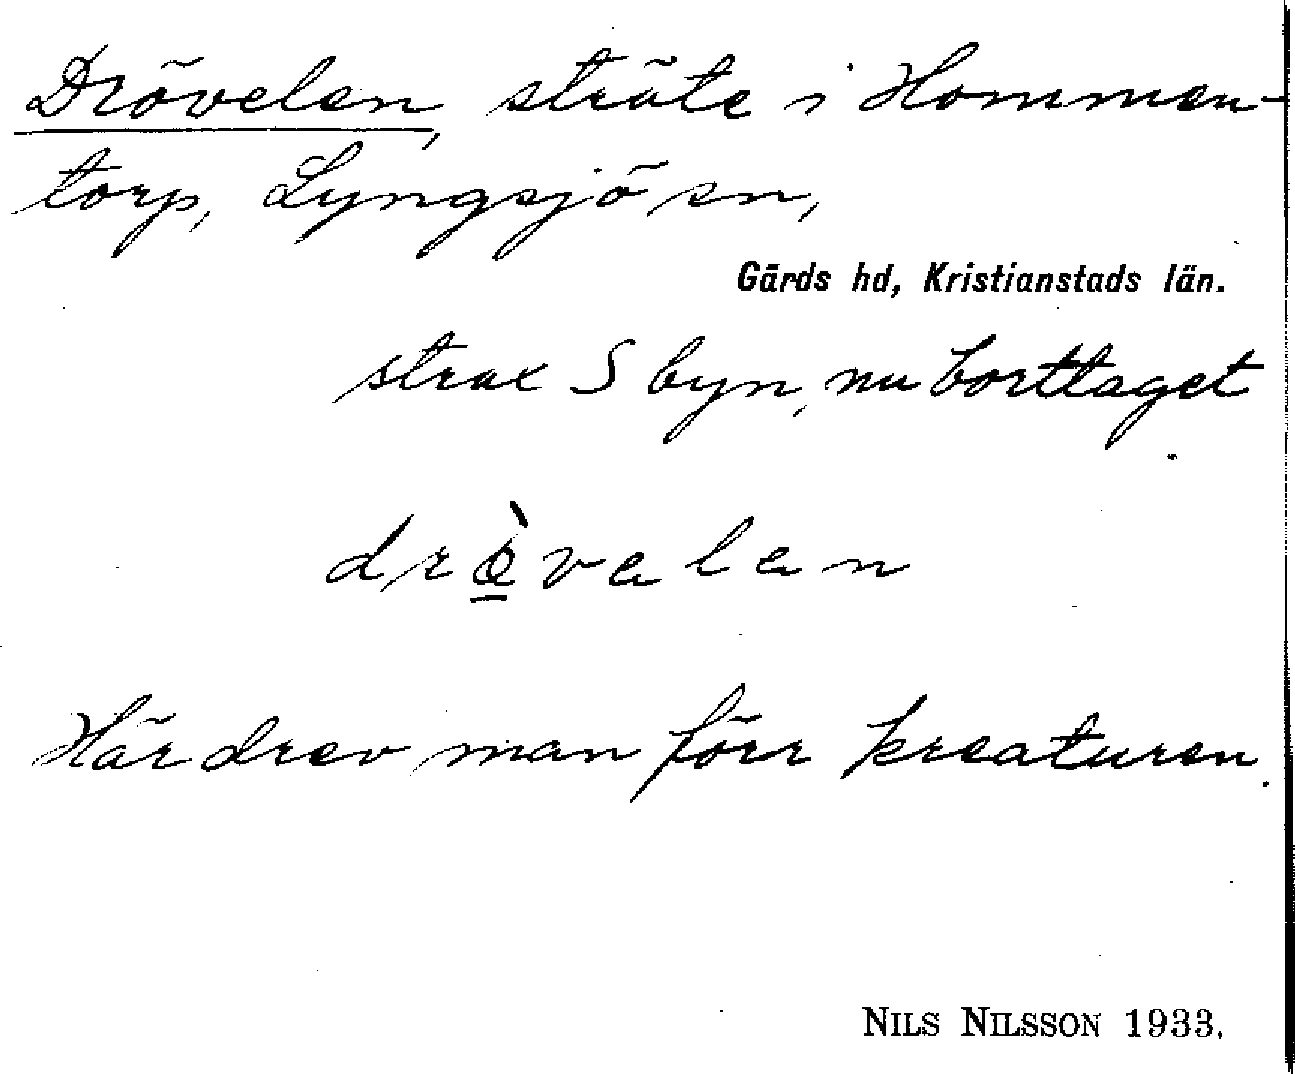 Drövelen, sträte i Hommen-
torp, Lyngsjö sn,
Gärds hd, Kristianstads län.
strax S byn, nu borttaget
drø̱̀valan
Här drev man förr kreaturen.
NILS NILSSON 1933.